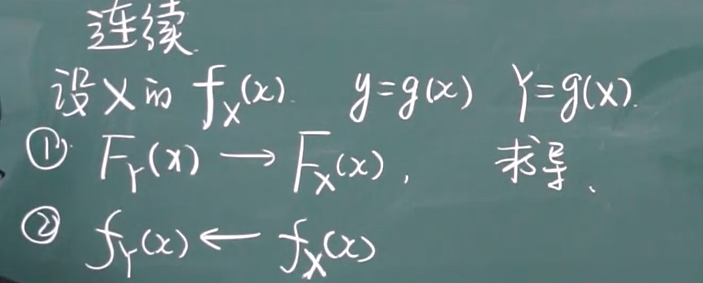 连续.
设X的 f_X(x). y=g(x) Y=g(X).
① F_Y(x) → F_X(x), 求导、
② f_Y(x) ← f_X(x)